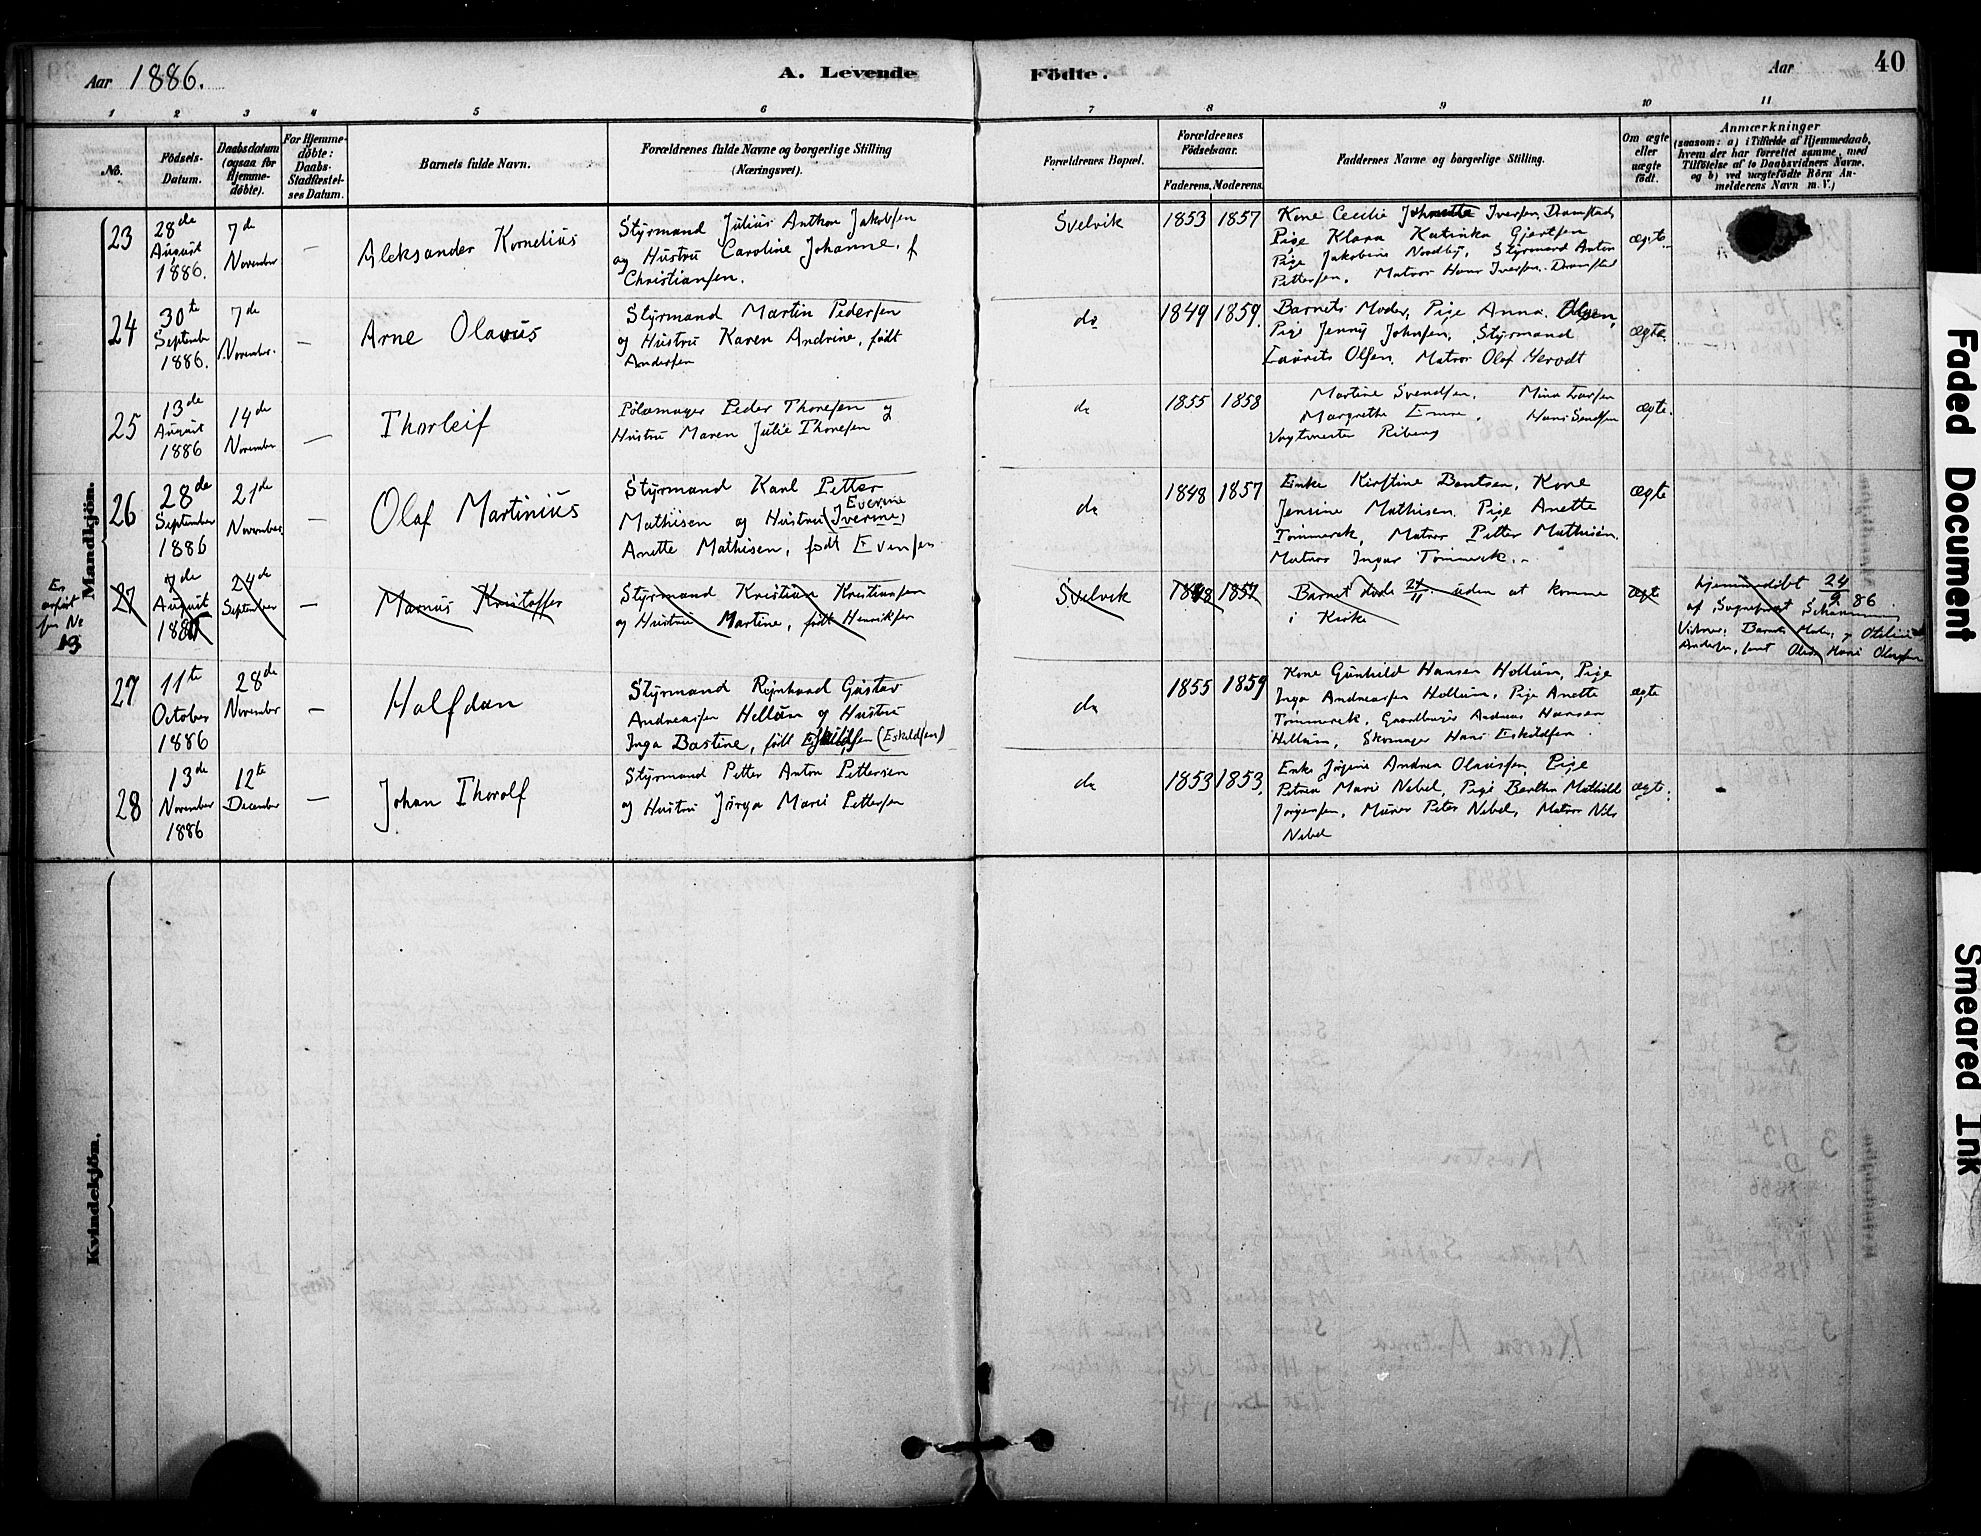 Aar 1886.
A. Levende
Födte.
Aar
40
1
2
3
4
5
6
7
8
9
10
11
No.
Födsels-
Datum.
Daabsdatum
(ogsaa for
Hjemme-
döbte).
For Hjemme-
döbte:
Daabs-
Stadfæstel-
ses Datum.
Barnets fulde Navn.
Forældrenes fulde Navne og borgerlige Stilling
(Næringsvei).
Forældrenes Bopæl.
Forældrenes
Födselsaar.
Faderens. Moderens.
Faddernes Navne og borgerlige Stilling.
Om ægte
eller
uægte
født.
Anmærkninger
(saasom: a) i Tilfælde af Hjemmedaab,
hvem der har forrettet samme, med
Tilföielse af to Daabsvidners Navne,
og b) ved uægtefödte Börn An-
melderens Navn m. V.)
Mandkjön.
23
28de
August
1886.
7de
November
—
Aleksander Kornelius
Styrmand Julius Anthon Jakobsen
og Hustru Caroline Johanne, f
Christiansen.
Svelvik
1853
1857
Kone Cecilie Iversen, Dramstad
Pige Klara Katinka Gjertsen
Pige Jakobine Nordby, Styrmand Anton
Pettersen, Matros Hans Iversen Dramstad
ægte
24
30te
September
1886.
7de
November.
—
Arne Olavus
Styrmand Martin Pedersen
og Hustru Karen Andrine, født
Andersen
do
1849
1859.
Barnets Moder, Pige Anna Olsen,
Pige Jenny Johnsen, Styrmand
Laurits Olsen, Matros Olaf Herodt
ægte.
25
13de
August
1886
14de
November
—
Thorleif
Pølsemager Peder Thoresen og
Hustru Maren Julie Thoresen
do
1855
1858
Martine Svendsen, Mina Larsen
Margrethe
Vagtmester Riberg
ægte.
26
28de
September
1886
21de
November
—
Olaf Martinius
Styrmand Karl Petter
Mathisen og Hustru (Iverine) Everine
Anette Mathisen, født Evensen
do
1848
1857
Enke Kirstine Bentsen, Kone
Jensine Mathisen, Pige Anette
Tømmerek, Matros Petter Mathisen,
Matros Ingvar Tømmerek.
ægte
Er
anført
No
13
27
7de
August
24de
September
—
Marius Kristoffer
Styrmand Kristian Kristiansen
og Hustru Martine, født Henriksen
Svelvik
1848
1857
Barnet døde 24/11 uden at komme
i Kirke
ægte
hjemmedøbt 24/9 86
af Sognepræst
Vidner: Barnets Moder, og Otilie
Andersen, samt Hans Olavsen
27
11te
October
1886
28de
November
—
Halfdan
Styrmand Reinhard Gustav
Andreassen Hellum og Hustru
Inga Bastine, født (Eskildsen)
do
1855
1859
Kone Gunhild Hansen Hollum, Pige
Inga Andreassen Hollum, Pige Anette
Tømmerek, Gaardbruger Andreas Hansen
Hellum, Skomager Hans Eskildsen.
ægte
28
13de
November
1886
12te
December
—
Johan Thorolf
Styrmand Petter Anton Pettersen
og Hustru Jørga Marie Pettersen
do
1853
1853.
Enke Jørgine Andrea Olaussen, Pige
Petrea Marie Nebel, Pige Berthe Mathilde
Jørgensen, Murer Peter Nebel, Matros Nils
Nebel
ægte.
Kvindekjön.
Faded Document
Smeared Ink